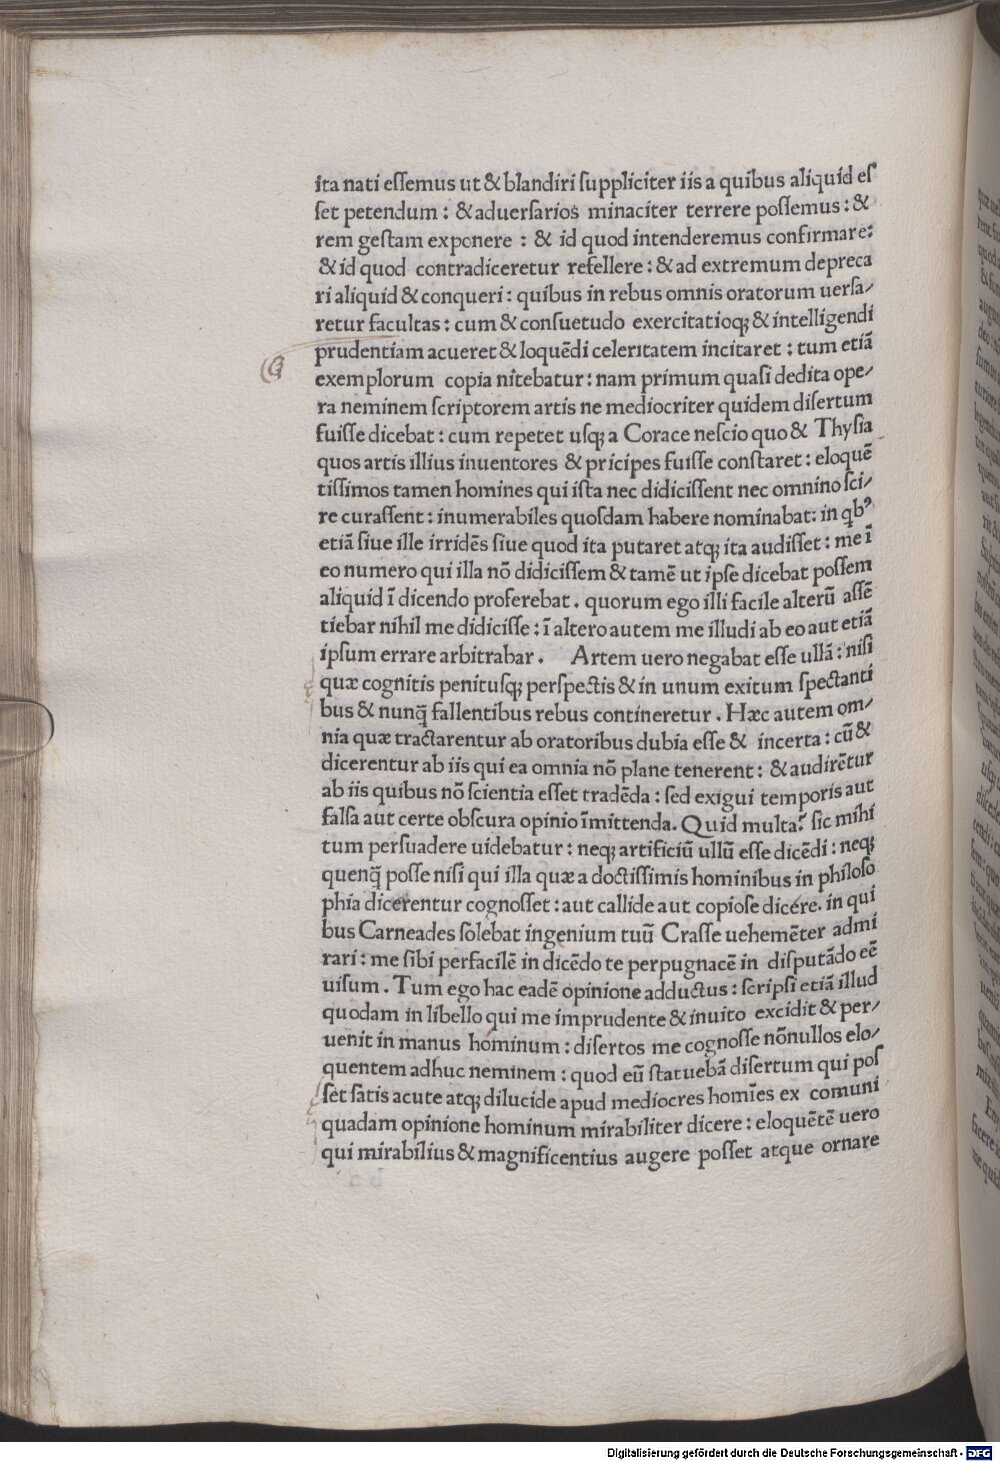 ita nati essemus ut & blandiri suppliciter iis a quibus aliquid eſ
ſet petendum : & aduerſarios minaciter terrere poſſemus : &
rem geſtam exponere : & id quod intenderemus confirmare:
& id quod contradiceretur refellere : & ad extremum depreca
ri aliquid & conqueri : quibus in rebus omnis oratorum uerſa/
retur facultas : cum & conſuetudo exercitatioq; & intelligendi
prudentiam acueret & loquēdi celeritatem incitaret : tum etiā
exemplorum copia nitebatur : nam primum quaſi dedita ope/
ra neminem ſcriptorem artis ne mediocriter quidem diſertum
fuiſſe dicebat : cum repetet uſq; a Corace neſcio quo & Thyſia
quos artis illius inuentores & pricipes fuiſſe conſtaret : eloquē
tiſſimos tamen homines qui iſta nec didiciſſent nec omnino ſci/
re curaſſent : inumerabiles quoſdam habere nominabat: in qbꝰ
etiā ſiue ille irridēs ſiue quod ita putaret atq; ita audiſſet : me ī
eo numero qui illa nō didiciſſem & tamē ut ipſe dicebat poſſem
aliquid ī dicendo proferebat . quorum ego illi facile alterū aſſē
tiebar nihil me didiciſſe : ī altero autem me illudi ab eo aut etiā
ipſum errare arbitrabar . Artem uero negabat eſſe ullā : niſi
quæ cognitis penituſq; perſpectis & in unum exitum ſpectanti
bus & nunq̄ fallentibus rebus contineretur . Hæc autem om/
nia quæ tractarentur ab oratoribus dubia eſſe & incerta : cū &
dicerentur ab iis qui ea omnia nō plane tenerent : & audirētur
ab iis quibus nō ſcientia eſſet tradēda : ſed exigui temporis aut
falſa aut certe obſcura opinio īmittenda. Quid multa? ſic mihi
tum perſuadere uidebatur : neq; artificiū ullū eſſe dicēdi : neq;
quenq̄ poſſe niſi qui illa quæ a doctiſſimis hominibus in philoſo
phia dicerentur cognoſſet : aut callide aut copioſe dicere. in qui
bus Carneades ſolebat ingenium tuū Craſſe uehemēter admi
rari : me ſibi perfacilē in dicēdo te perpugnacē in diſputādo eē
uiſum . Tum ego hac eadē opinione adductus : ſcripſi etiā illud
quodam in libello qui me imprudente & inuito excidit & per/
uenit in manus hominum : diſertos me cognoſſe nōnullos elo/
quentem adhuc neminem : quod eū ſtatuebā diſertum qui poſ
ſet ſatis acute atq; dilucide apud mediocres homīes ex comuni
quadam opinione hominum mirabiliter dicere : eloquētē uero
qui mirabilius & magnificentius augere poſſet atque ornare
Digitalisierung gefördert durch die Deutsche Forschungsgemeinschaft - DFG